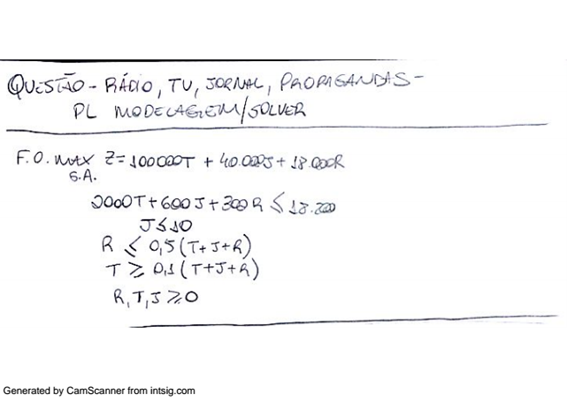 QUESTÃO - RÁDIO, TV, JORNAL, PROPAGANDAS -
PL MODELAGEM/SOLVER
F.O. MAX Z = 100000T + 40.000J + 18.000R
S.A.
2000T + 600J + 300R ≤ 18.200
J ≤ 10
R ≤ 0,5 (T+J+R)
T ≥ 0,1 (T+J+R)
R, T, J ≥ 0
Generated by CamScanner from intsig.com